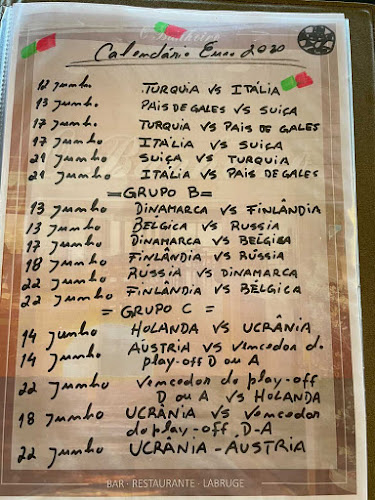 Calendário Euro 2020
12 Junho TURQUIA VS ITÁLIA
13 Junho PAIS DE GALES VS SUIÇA
17 Junho TURQUIA VS PAIS DE GALES
17 Junho ITÁLIA VS SUIÇA
21 Junho SUIÇA VS TURQUIA
21 Junho ITÁLIA VS PAIS DE GALES
=GRUPO B=
13 Junho DINAMARCA VS FINLÂNDIA
13 Junho BELGICA VS RUSSIA
17 Junho DINAMARCA VS BELGICA
18 Junho FINLÂNDIA VS RÚSSIA
22 Junho RÚSSIA VS DINAMARCA
22 Junho FINLÂNDIA VS BÉLGICA
= GRUPO C =
14 Junho HOLANDA VS UCRÂNIA
14 Junho ÁUSTRIA VS Vencedor do
play-off D ou A
22 Junho Vencedor do play-off
D ou A VS HOLANDA
18 Junho UCRÂNIA VS Vencedor
do play-off D-A
22 Junho UCRÂNIA - ÁUSTRIA
BAR · RESTAURANTE · LABRUGE